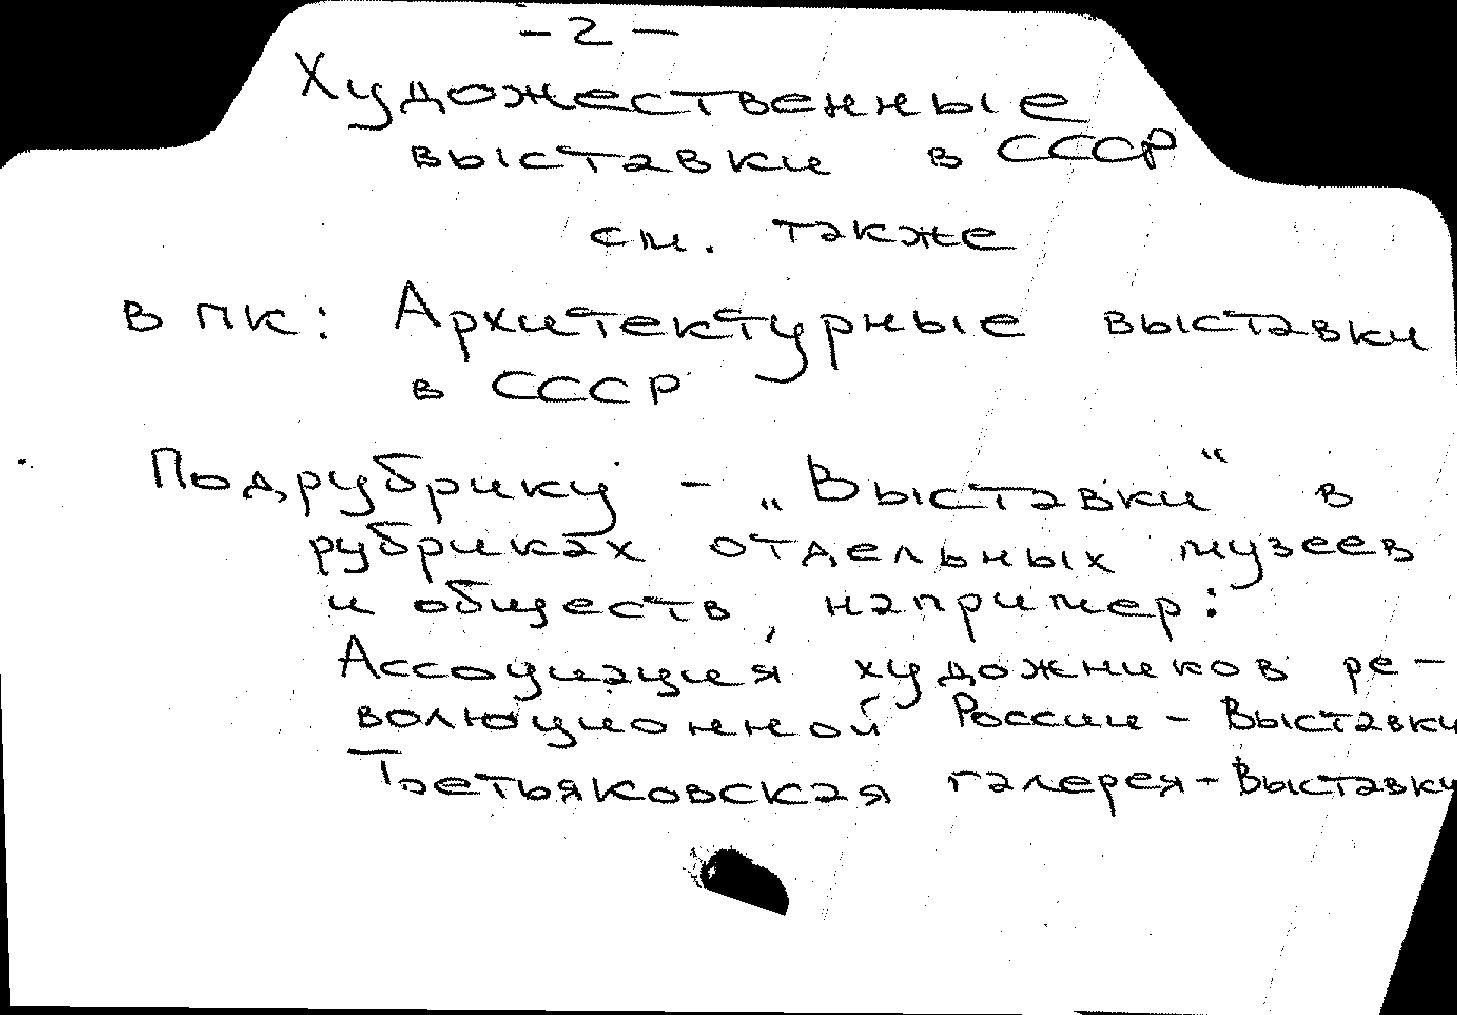 - 2 -
Художественные
выставки в СССР
см. также
в ПК: Архитектурные выставки
в СССР
Подрубрику - „Выставки“ в
рубриках отдельных музеев
и обществ, например:
Ассоциация художников ре-
волюционной России - Выставки
Третьяковская галерея - Выставки